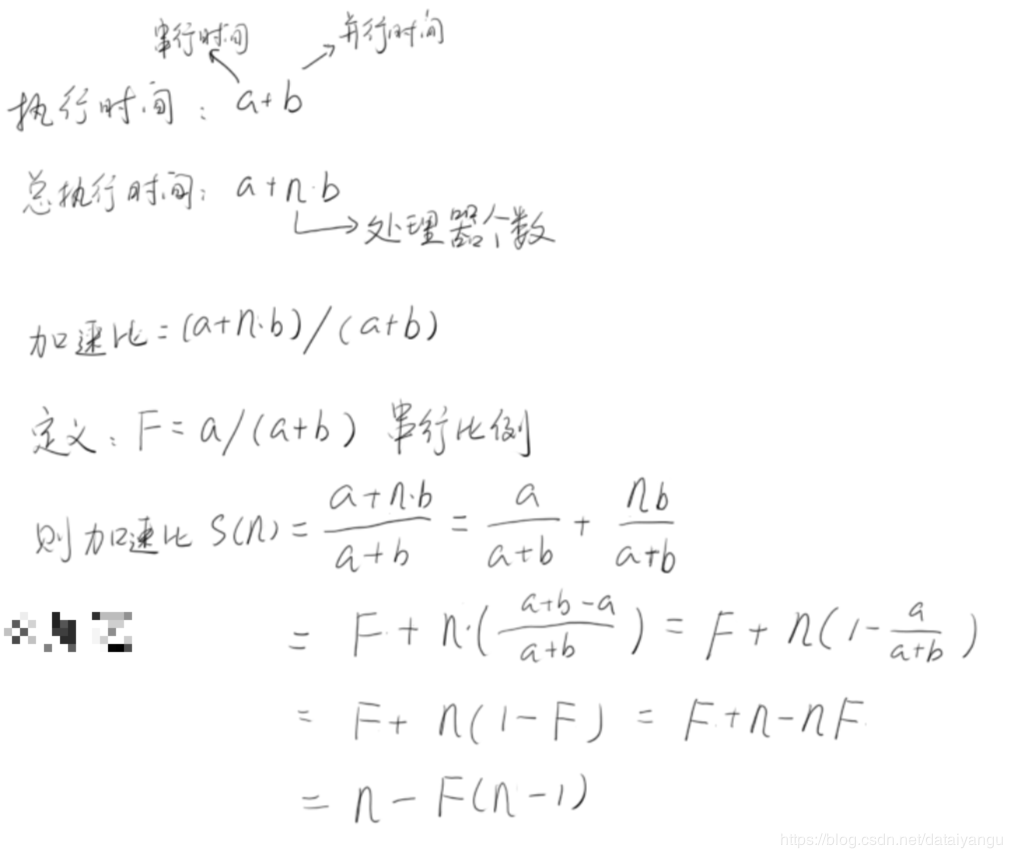 串行时间 并行时间
执行时间: a+b
总执行时间: a+n·b
处理器个数
加速比=(a+n·b)/(a+b)
定义: F=a/(a+b) 串行比例
则加速比 S(n) = \frac{a+n·b}{a+b} = \frac{a}{a+b} + \frac{nb}{a+b}
= F + n·(\frac{a+b-a}{a+b}) = F + n(1-\frac{a}{a+b})
= F + n(1-F) = F+n-nF
= n-F(n-1)
https://blog.csdn.net/dataiyangu